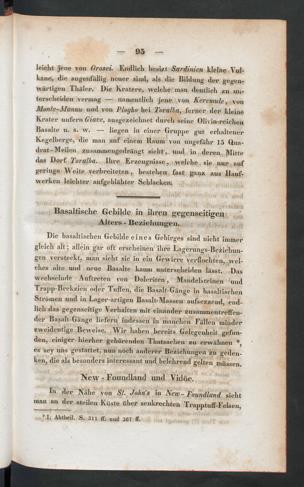 — 95 —
leicht jene von Grosei. Endlich besizt Sardinien kleine Vul-
kane, die augenfällig neuer sind, als die Bildung der gegen-
wärtigen Thäler. Die Kratere, welche man deutlich zu un-
terscheiden vermag — namentlich jene von Keremule, von
Monte-Mannu und von Ploghe bei Toralba, ferner der kleine
Krater unfern Giave, ausgezeichnet durch seine Olivin-reichen
Basalte u. s. w. — liegen in einer Gruppe gut erhaltener
Kegelberge, die man auf einem Raum von ungefähr 15 Qua-
drat-Meilen zusammengedrängt sieht, und in deren Mitte
das Dorf Toralba. Ihre Erzeugnisse, welche sie nur auf
geringe Weite verbreiteten, bestehen fast ganz aus Hauf-
werken leichter aufgeblähter Schlacken.
Basaltische Gebilde in ihren gegenseitigen
Alters-Beziehungen.
Die basaltischen Gebilde eines Gebirges sind nicht immer
gleich alt; allein gar oft erscheinen ihre Lagerungs-Beziehun-
gen versteckt, man sieht sie in ein Gewirre verflochten, wel-
ches alte und neue Basalte kaum unterscheiden lässt. Das
wechselnde Auftreten von Doleriten, Mandelsteinen und
Trapp-Brekzien oder Tuffen, die Basalt-Gänge in basaltischen
Strömen und in Lager-artigen Basalt-Massen aufsetzend, end-
lich das gegenseitige Verhalten mit einander zusammentreffen-
der Basalt-Gänge liefern indessen in manchen Fällen minder
zweideutige Beweise. Wir haben bereits Gelegenheit gefun-
den, einiger hierher gehörenden Thatsachen zu erwähnen *,
es sey uns gestattet, nun noch anderer Beziehungen zu geden-
ken, die als besonders interessant und belehrend gelten müssen.
New-Foundland und Vidöe.
In der Nähe von St. John's in New-Foundland sieht
man an der steilen Küste über senkrechten Trapptuff-Felsen,
* I. Abtheil. S. 311 ff. und 367 ff.